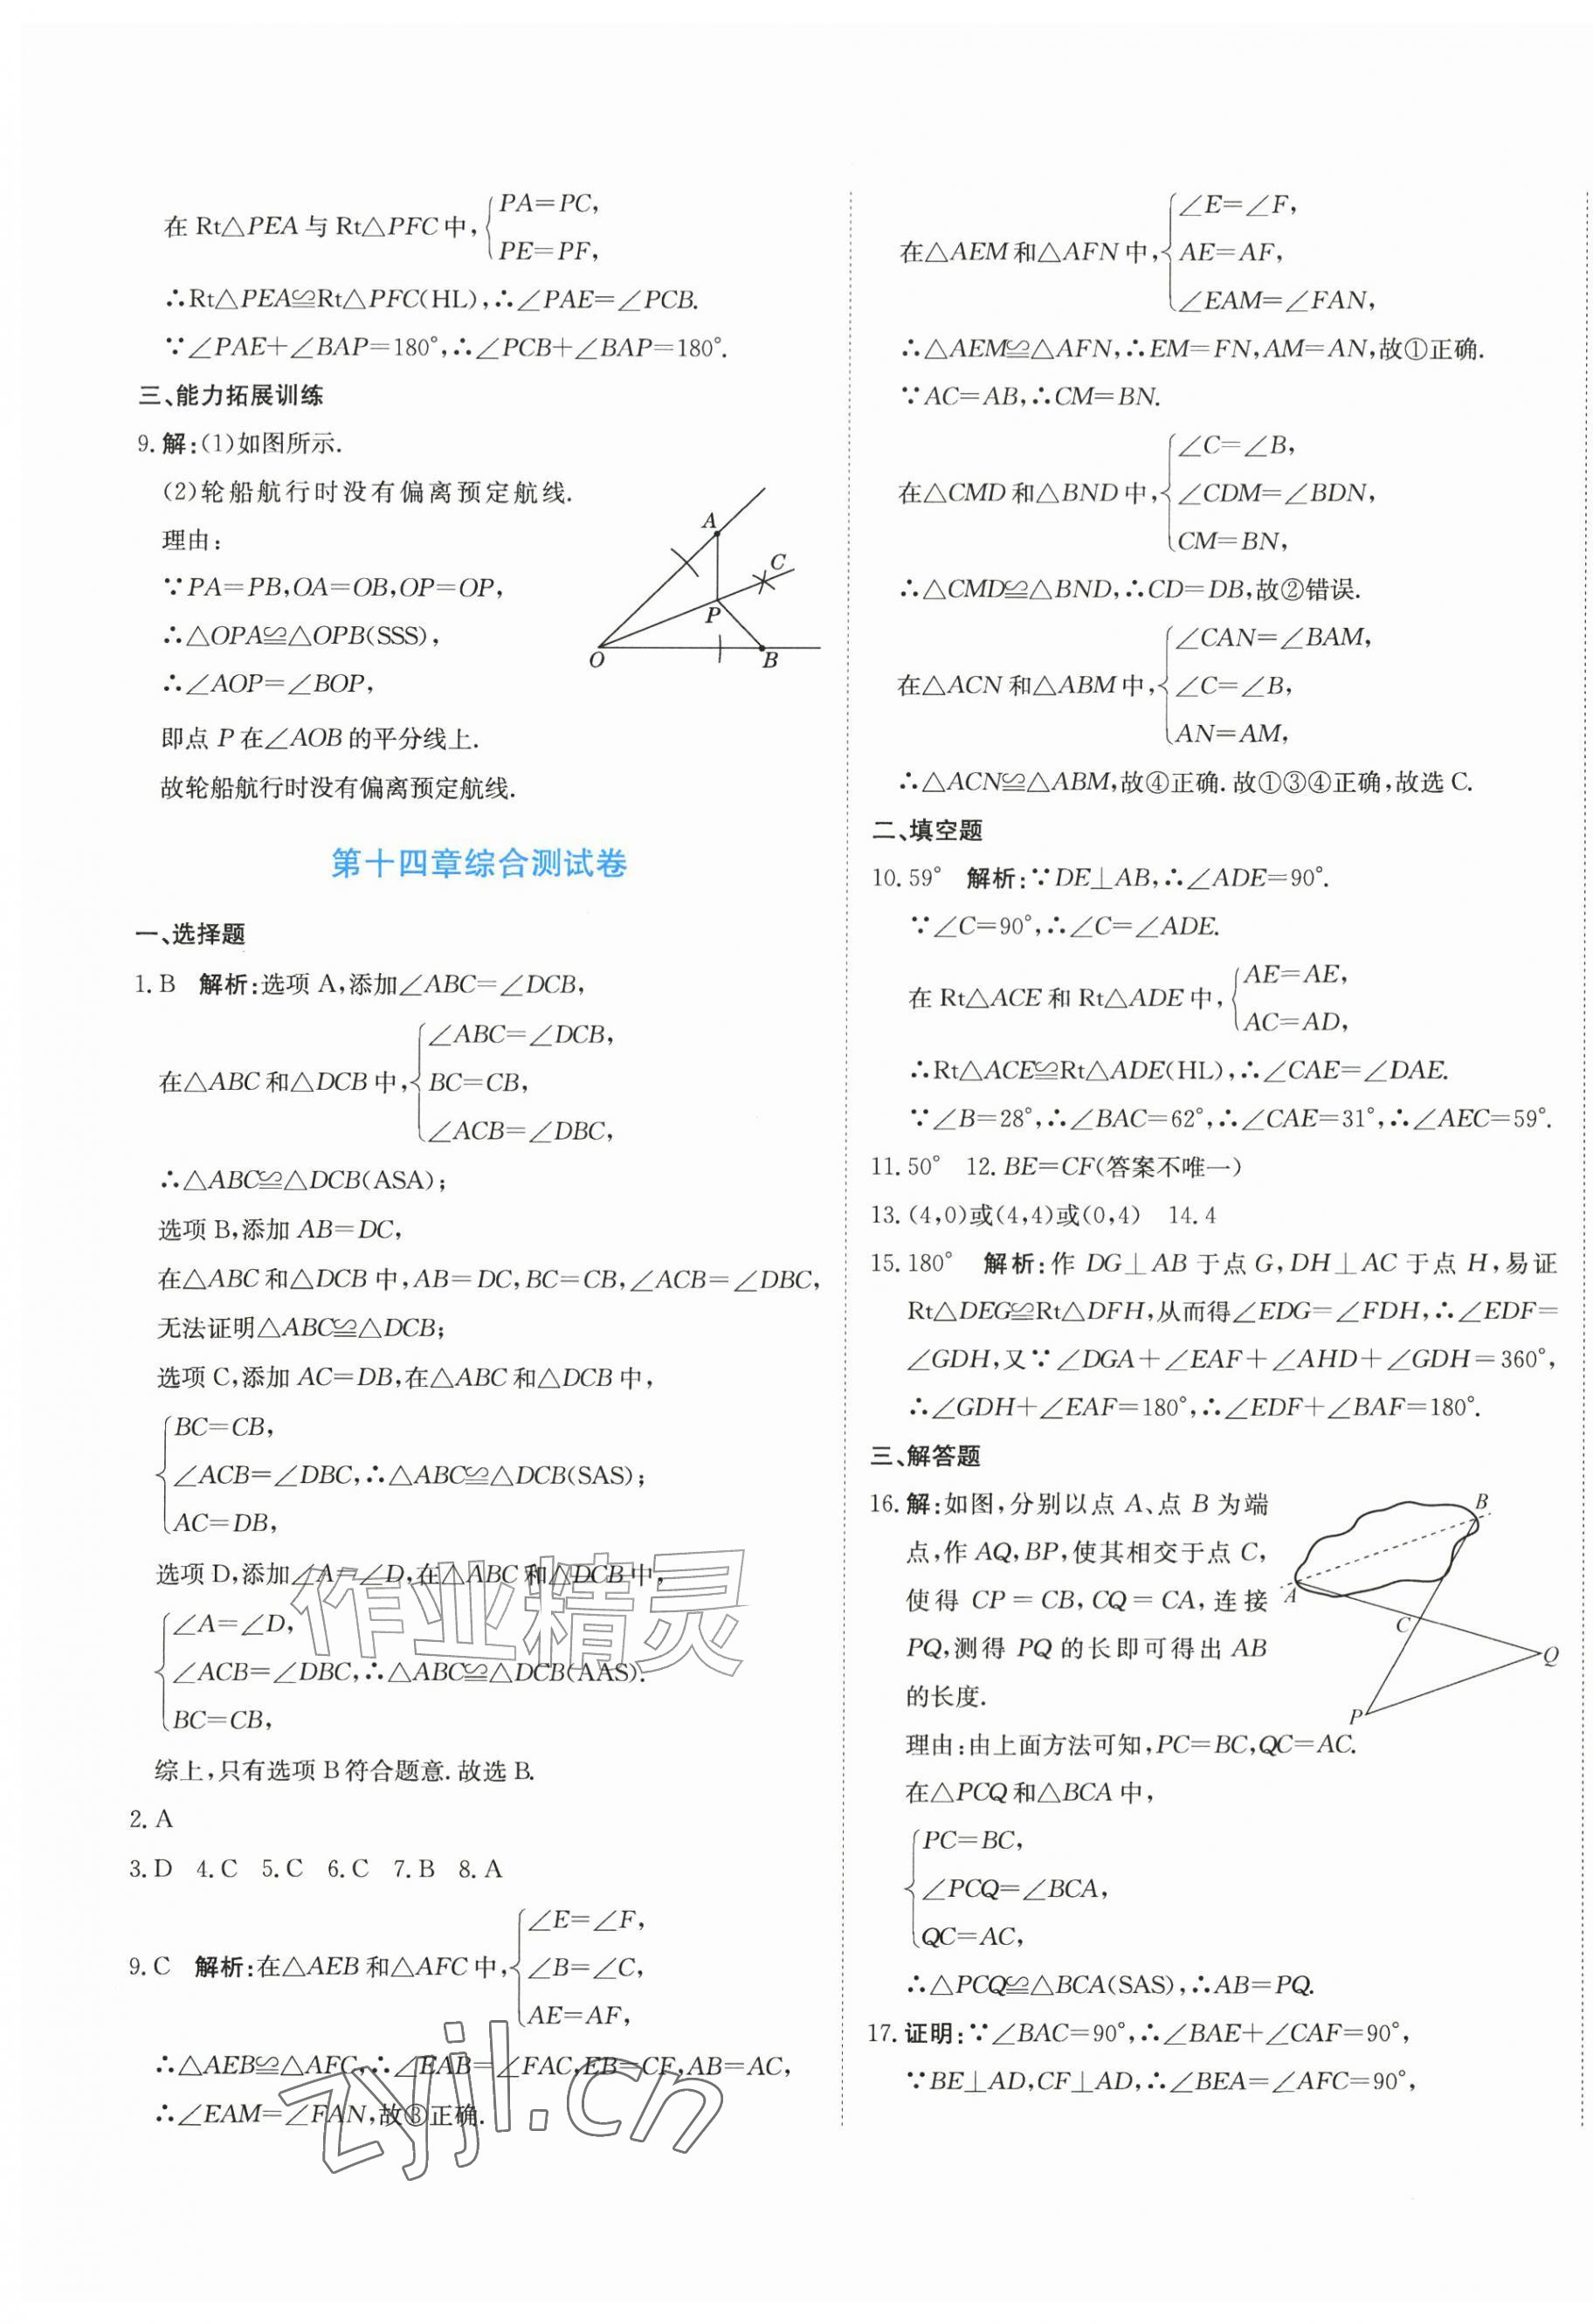 在 Rt△PEA 与 Rt△PFC 中,{PA=PC,
PE=PF,
∴Rt△PEA≌Rt△PFC(HL),∴∠PAE=∠PCB.
∵∠PAE+∠BAP=180°,∴∠PCB+∠BAP=180°.
三、能力拓展训练
9.解:(1)如图所示.
(2)轮船航行时没有偏离预定航线.
理由:
∵PA=PB,OA=OB,OP=OP,
∴△OPA≌△OPB(SSS),
∴∠AOP=∠BOP,
即点 P 在∠AOB 的平分线上.
故轮船航行时没有偏离预定航线.
A
C
P
O
B
第十四章综合测试卷
一、选择题
1.B 解析:选项 A,添加∠ABC=∠DCB,
在△ABC 和△DCB 中,{∠ABC=∠DCB,
BC=CB,
∠ACB=∠DBC,
∴△ABC≌△DCB(ASA);
选项 B,添加 AB=DC,
在△ABC 和△DCB 中,AB=DC,BC=CB,∠ACB=∠DBC,
无法证明△ABC≌△DCB;
选项 C,添加 AC=DB,在△ABC 和△DCB 中,
{BC=CB,
∠ACB=∠DBC,∴△ABC≌△DCB(SAS);
AC=DB,
选项 D,添加∠A=∠D,在△ABC 和△DCB 中,
{∠A=∠D,
∠ACB=∠DBC,∴△ABC≌△DCB(AAS).
BC=CB,
综上,只有选项 B 符合题意.故选 B.
2.A
3.D 4.C 5.C 6.C 7.B 8.A
9.C 解析:在△AEB 和△AFC 中,{∠E=∠F,
∠B=∠C,
AE=AF,
∴△AEB≌△AFC,∴∠EAB=∠FAC,EB=CF,AB=AC,
∴∠EAM=∠FAN,故③正确.
作业精灵
zyjl.cn
在△AEM 和△AFN 中,{∠E=∠F,
AE=AF,
∠EAM=∠FAN,
∴△AEM≌△AFN,∴EM=FN,AM=AN,故①正确.
∵AC=AB,∴CM=BN.
在△CMD 和△BND 中,{∠C=∠B,
∠CDM=∠BDN,
CM=BN,
∴△CMD≌△BND,∴CD=DB,故②错误.
在△ACN 和△ABM 中,{∠CAN=∠BAM,
∠C=∠B,
AN=AM,
∴△ACN≌△ABM,故④正确.故①③④正确,故选 C.
二、填空题
10.59° 解析:∵DE⊥AB,∴∠ADE=90°.
∵∠C=90°,∴∠C=∠ADE.
在 Rt△ACE 和 Rt△ADE 中,{AE=AE,
AC=AD,
∴Rt△ACE≌Rt△ADE(HL),∴∠CAE=∠DAE.
∵∠B=28°,∴∠BAC=62°,∴∠CAE=31°,∴∠AEC=59°.
11.50° 12.BE=CF(答案不唯一)
13.(4,0)或(4,4)或(0,4) 14.4
15.180° 解析:作 DG⊥AB 于点 G,DH⊥AC 于点 H,易证
Rt△DEG≌Rt△DFH,从而得∠EDG=∠FDH,∴∠EDF=
∠GDH,又∵∠DGA+∠EAF+∠AHD+∠GDH=360°,
∴∠GDH+∠EAF=180°,∴∠EDF+∠BAF=180°.
三、解答题
16.解:如图,分别以点 A、点 B 为端
点,作 AQ,BP,使其相交于点 C,
使得 CP=CB,CQ=CA,连接
PQ,测得 PQ 的长即可得出 AB
的长度.
B
A
C
Q
P
理由:由上面方法可知,PC=BC,QC=AC.
在△PCQ 和△BCA 中,
{PC=BC,
∠PCQ=∠BCA,
QC=AC,
∴△PCQ≌△BCA(SAS),∴AB=PQ.
17.证明:∵∠BAC=90°,∴∠BAE+∠CAF=90°,
∵BE⊥AD,CF⊥AD,∴∠BEA=∠AFC=90°,